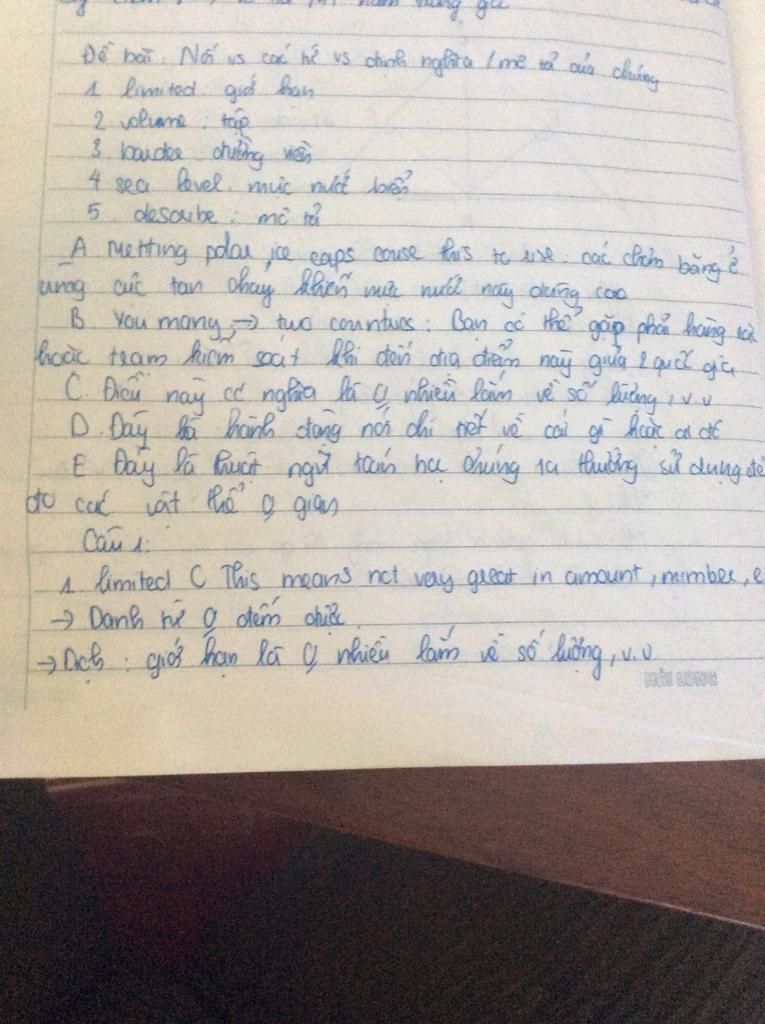 Đề bài: Nối vs các từ vs định nghĩa / mô tả của chúng
1 limited: giới hạn
2 volume: tập
3 border: đường viền
4 sea level: mực nước biển
5 describe: mô tả
A Metting polar ice caps couse this to rise. các chỏm băng ở
vùng cực tan chảy khiến mực nước này dâng cao
B. You many → two countries: Bạn có thể gặp phải hàng rào
hoặc trạm kiểm soát khi đến địa điểm này giữa 2 quốc gia
C. Điều này có nghĩa là 0 nhiều lắm về số lượng, v.v
D. Đây là hành động nói chi tiết về cái gì hoặc ai đó
E Đây là thuật ngữ toán học chúng ta thường sử dụng để
đo các vật thể 0 gian
Câu 1:
1. limited C This means not very great in amount, number, e
→ Danh từ 0 đếm được
→ Dịch: giới hạn là 0 nhiều lắm về số lượng, v.v
HẢI LONG